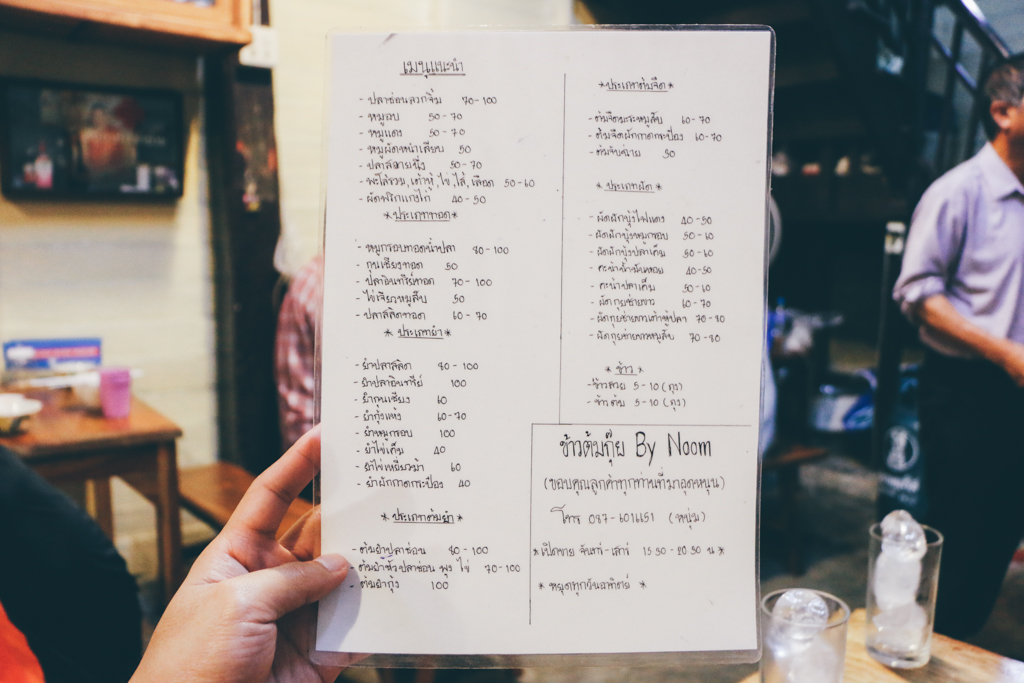 เมนูแนะนำ
- ปลาช่อนลวกจิ้ม 70-100
- หมูอบ 50-70
- หมูแดง 50-70
- หมูผัดหนำเลียบ 50
- ปลาสลายนึ่ง 50-70
- พะโล้รวม, เต้าหู้, ไข่, ไส้, เลือด 50-60
- ผัดพริกแกงไก่ 40-50
*ประเภททอด*
- หมูกรอบทอดน้ำปลา 80-100
- กุนเชียงทอด 50
- ปลาอินทรีย์ทอด 70-100
- ไข่เจียวหมูสับ 50
- ปลาสลิดทอด 60-70
*ประเภทยำ*
- ยำปลาสลิด 80-100
- ยำปลาอินทรีย์ 100
- ยำกุนเชียง 60
- ยำกุ้งแห้ง 60-70
- ยำหมูกรอบ 100
- ยำไข่เค็ม 40
- ยำไข่เยี่ยวม้า 60
- ยำผักกาดกระป๋อง 40
*ประเภทต้มยำ*
- ต้มยำปลาช่อน 80-100
- ต้มยำหัวปลาช่อน พุง ไข่ 70-100
- ต้มยำกุ้ง 100
*ประเภทต้มจืด*
- ต้มจืดมะระหมูสับ 60-70
- ต้มจืดผักกาดกระป๋อง 60-70
- ต้มจับฉ่าย 30
*ประเภทผัด*
- ผัดผักบุ้งไฟแดง 40-50
- ผัดผักบุ้งหมูกรอบ 50-60
- ผัดผักบุ้งปลาเค็ม 50-60
- คะน้าน้ำมันหอย 40-50
- คะน้าปลาเค็ม 50-60
- ผัดกุยช่ายขาว 60-70
- ผัดกุยช่ายขาวเต้าหู้ปลา 70-80
- ผัดกุยช่ายขาวหมูสับ 70-80
*ข้าว*
- ข้าวสวย 5-10 (ถุง)
- ข้าวต้ม 5-10 (ถุง)
ข้าวต้มกุ๊ย By Noom
(ขอบคุณลูกค้าทุกท่านที่มาอุดหนุน)
โทร 087-6011651 (หนุ่ม)
*เปิดขาย จันทร์-เสาร์ 15.30-20.30 น*
*หยุดทุกวันอาทิตย์*